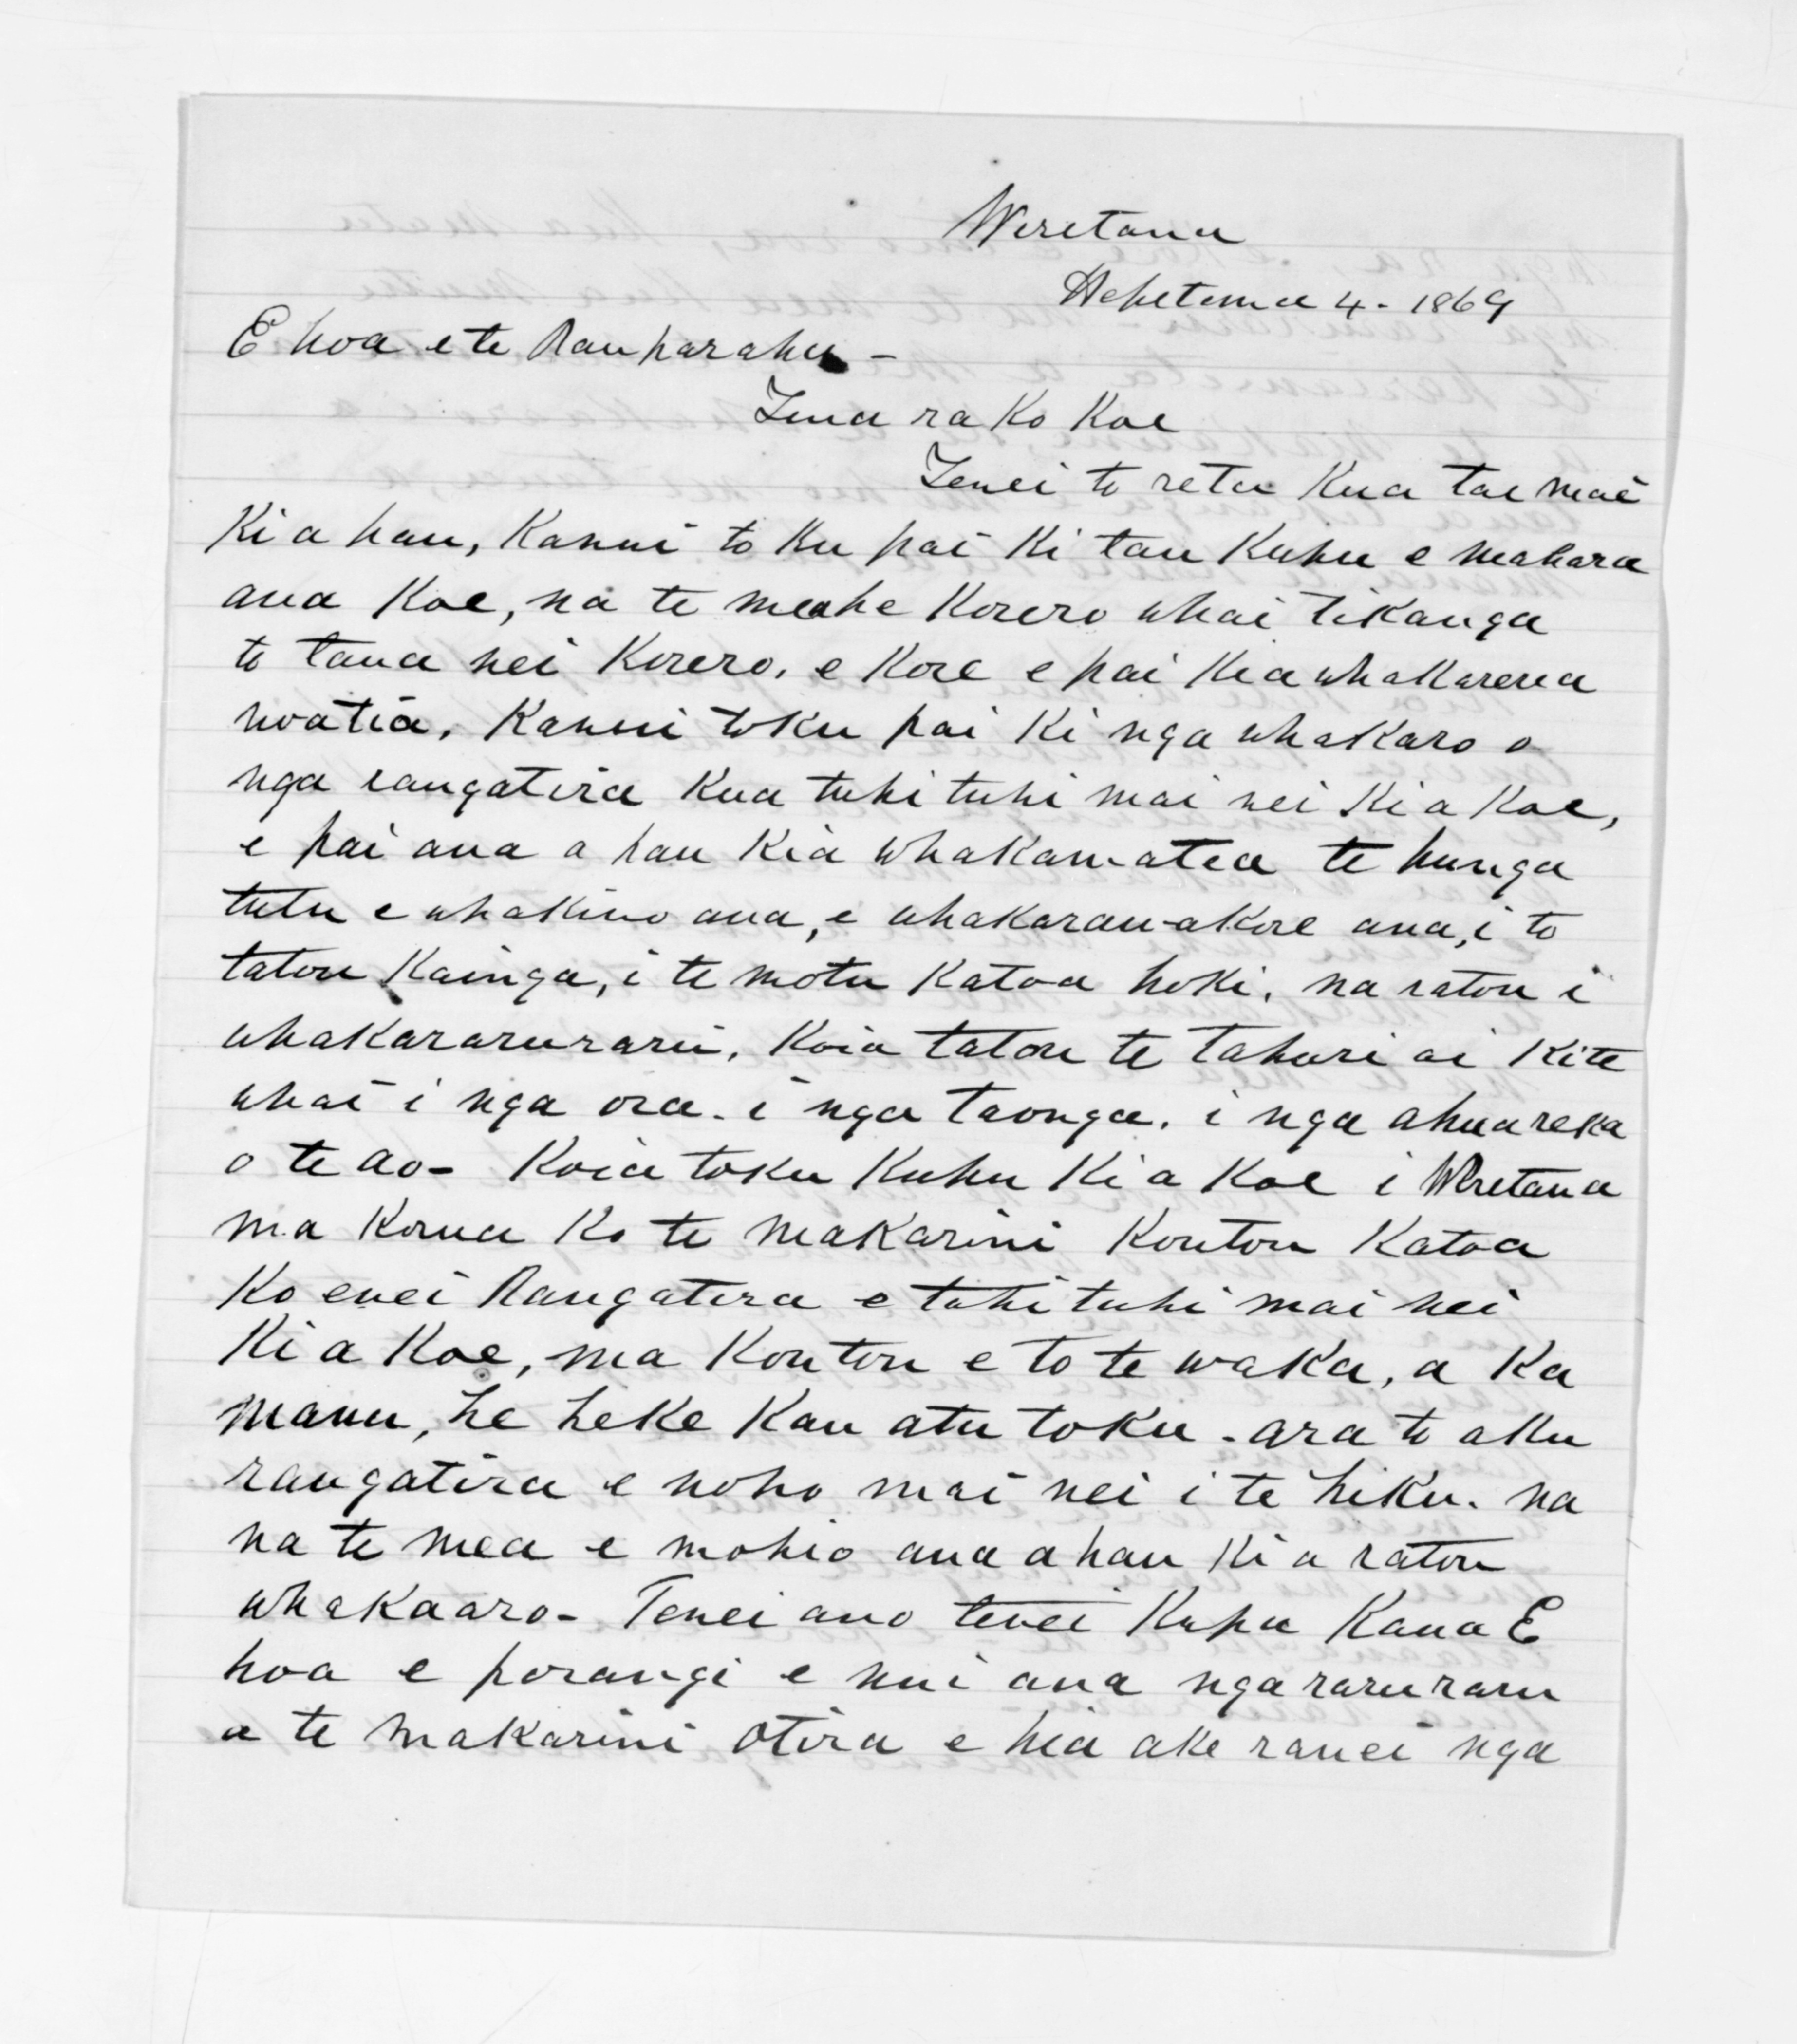 Weretana
Hepetema 4 - 1869
E hoa e te Rauparaha -
Tena ra ko koe
Tenei to reta kua tae mai
ki a hau, kanui to ku pai ki tau kupu e mahara
ana koe, na te meahe korero whai tikanga
to taua nei korero, e kore e pai kia whakarerea
noatia, kanui toku pai ki nga whakaro o
nga rangatira kua tuhi tuhi mai nei ki a koe,
e pai ana a hau kia whakamatea te hunga
tutu e whakino ana, e whakarau-akore ana, i to
tatou kainga, i te motu katoa hoki, na ratou i
whakararuraru, koia tatou te tahuri ai kite
whai i nga ora. i nga taonga. i nga ahuareka
o te ao - koia toku kupu ki a koe i Weretana
ma korua ko te makarini koutou katoa
ko enei Rangatira e tuhi tuhi mai nei
ki a koe, ma koutou e to te waka, a ka
manu, he heke kau atu toku - ara to aku
rangatira e noho mai nei i te hiku. na
na te mea e mohio ana a hau ki a ratou
whakaaro - Tenei ano tenei kupu kaua E
hoa e porangi e nui ana nga raruraru
a te makarini otira e hia ake ranei nga